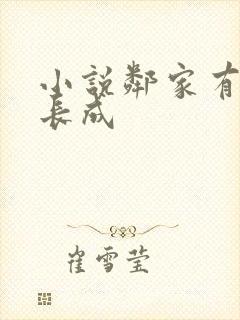 小說鄰家有
長成
崔雪莹